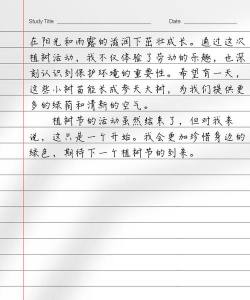 Study Title
Date
在阳光和雨露的滋润下茁壮成长。通过这次
植树活动，我不仅体验了劳动的乐趣，也深
刻认识到保护环境的重要性。希望有一天，
这些小树苗能长成参天大树，为我们提供更
多的绿荫和清新的空气。
植树节的活动虽然结束了，但对我来
说，这只是一个开始。我会更加珍惜身边的
绿色，期待下一个植树节的到来。